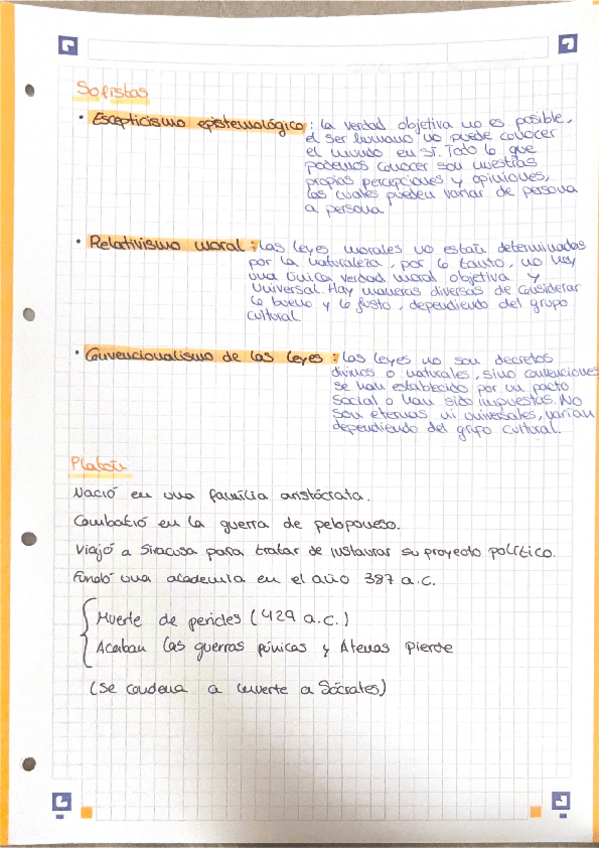 Sofistas
• Escepticismo epistemológico: la verdad objetiva no es posible,
el ser humano no puede conocer
el mundo en sí. Todo lo que
podemos conocer son nuestras
propias percepciones y opiniones,
las cuales pueden variar de persona
a persona
• Relativismo moral: Las leyes morales no están determinadas
por la naturaleza, por lo tanto, no hay
una única verdad moral objetiva y
universal. Hay maneras diversas de considerar
lo bueno y lo justo, dependiendo del grupo
cultural.
• Convencionalismo de las leyes: las leyes no son decretos
divinos o naturales, sino convenciones
se han establecido por un pacto
social o han sido impuestas. No
son eternas ni universales, varían
dependiendo del grupo cultural.
Platón
Nació en una familia aristócrata.
Combatió en la guerra de peloponeso.
Viajó a Siracusa para tratar de instaurar su proyecto político.
Fundó una academia en el año 387 a.c.
Muerte de pericles (429 a.c.)
Acaban las guerras púnicas y Atenas pierde
(se condena a muerte a Sócrates)